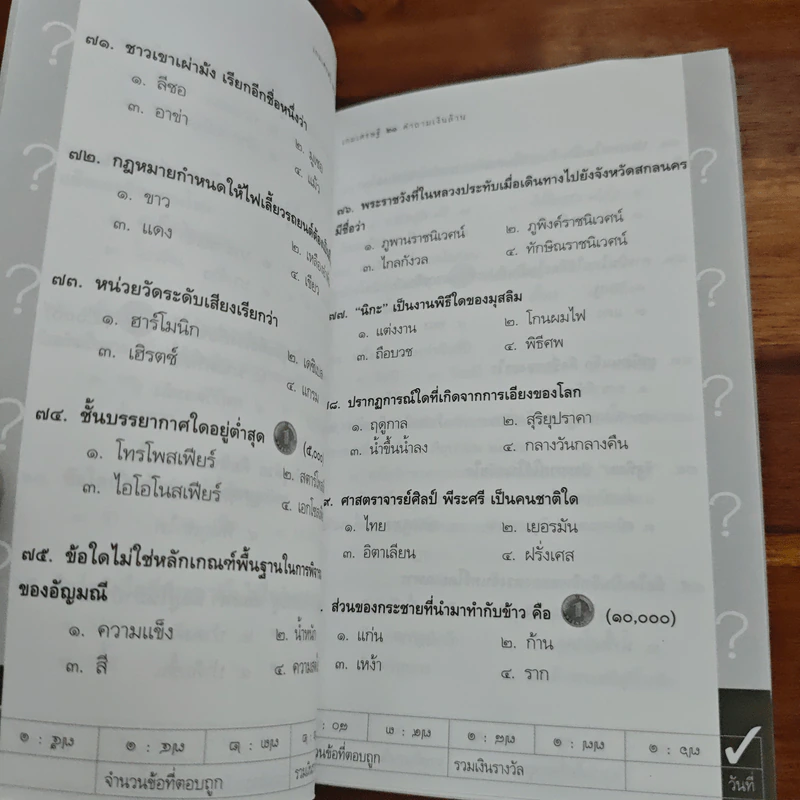 ๗๑. ชาวเขาเผ่าม้ง เรียกอีกชื่อหนึ่งว่า
๑. ลีซอ
๒. มูเซอ
๓. อาข่า
๔. แม้ว
๗๒. กฎหมายกำหนดให้ไฟเลี้ยวรถยนต์ต้อง
๑. ขาว
๒.
๓. แดง
๔. เขียว
๗๓. หน่วยวัดระดับเสียงเรียกว่า
๑. ฮาร์โมนิก
๒. เดซิเบล
๓. เฮิรตซ์
๔. แกรม
๗๔. ชั้นบรรยากาศใดอยู่ต่ำสุด (๕,๐๐๐)
๑. โทรโพสเฟียร์
๒.
๓. ไอโอโนสเฟียร์
๔.
๗๕. ข้อใดไม่ใช่หลักเกณฑ์พื้นฐานในการ
ของอัญมณี
๑. ความแข็ง
๒. น้ำหนัก
๓. สี
๔.
๗๕ : ๒ ๗๔ : ๑ ๗๓ : ๒
จำนวนข้อที่ตอบถูก
เกมเศรษฐี ๒๑ คำถามเงินล้าน
๗๖. พระราชวังที่ในหลวงประทับเมื่อเดินทางไปยังจังหวัดสกลนคร
มีชื่อว่า
๑. ภูพานราชนิเวศน์ ๒. ภูพิงค์ราชนิเวศน์
๓. ไกลกังวล ๔. ทักษิณราชนิเวศน์
๗๗. "นิกะ" เป็นงานพิธีใดของมุสลิม
๑. แต่งงาน ๒. โกนผมไฟ
๓. ถือบวช ๔. พิธีศพ
๘. ปรากฏการณ์ใดที่เกิดจากการเอียงของโลก
๑. ฤดูกาล ๒. สุริยุปราคา
๓. น้ำขึ้นน้ำลง ๔. กลางวันกลางคืน
๙. ศาสตราจารย์ศิลป์ พีระศรี เป็นคนชาติใด
๑. ไทย ๒. เยอรมัน
๓. อิตาเลียน ๔. ฝรั่งเศส
. ส่วนของกระชายที่นำมาทำกับข้าว คือ (๑๐,๐๐๐)
๑. แก่น ๒. ก้าน
๓. เหง้า ๔. ราก
๘๐ : ๗๙ : ๓ ๗๘ : ๑ ๗๗ : ๑ ๗๖ : ๑
นวนข้อที่ตอบถูก รวมเงินรางวัล วันที่